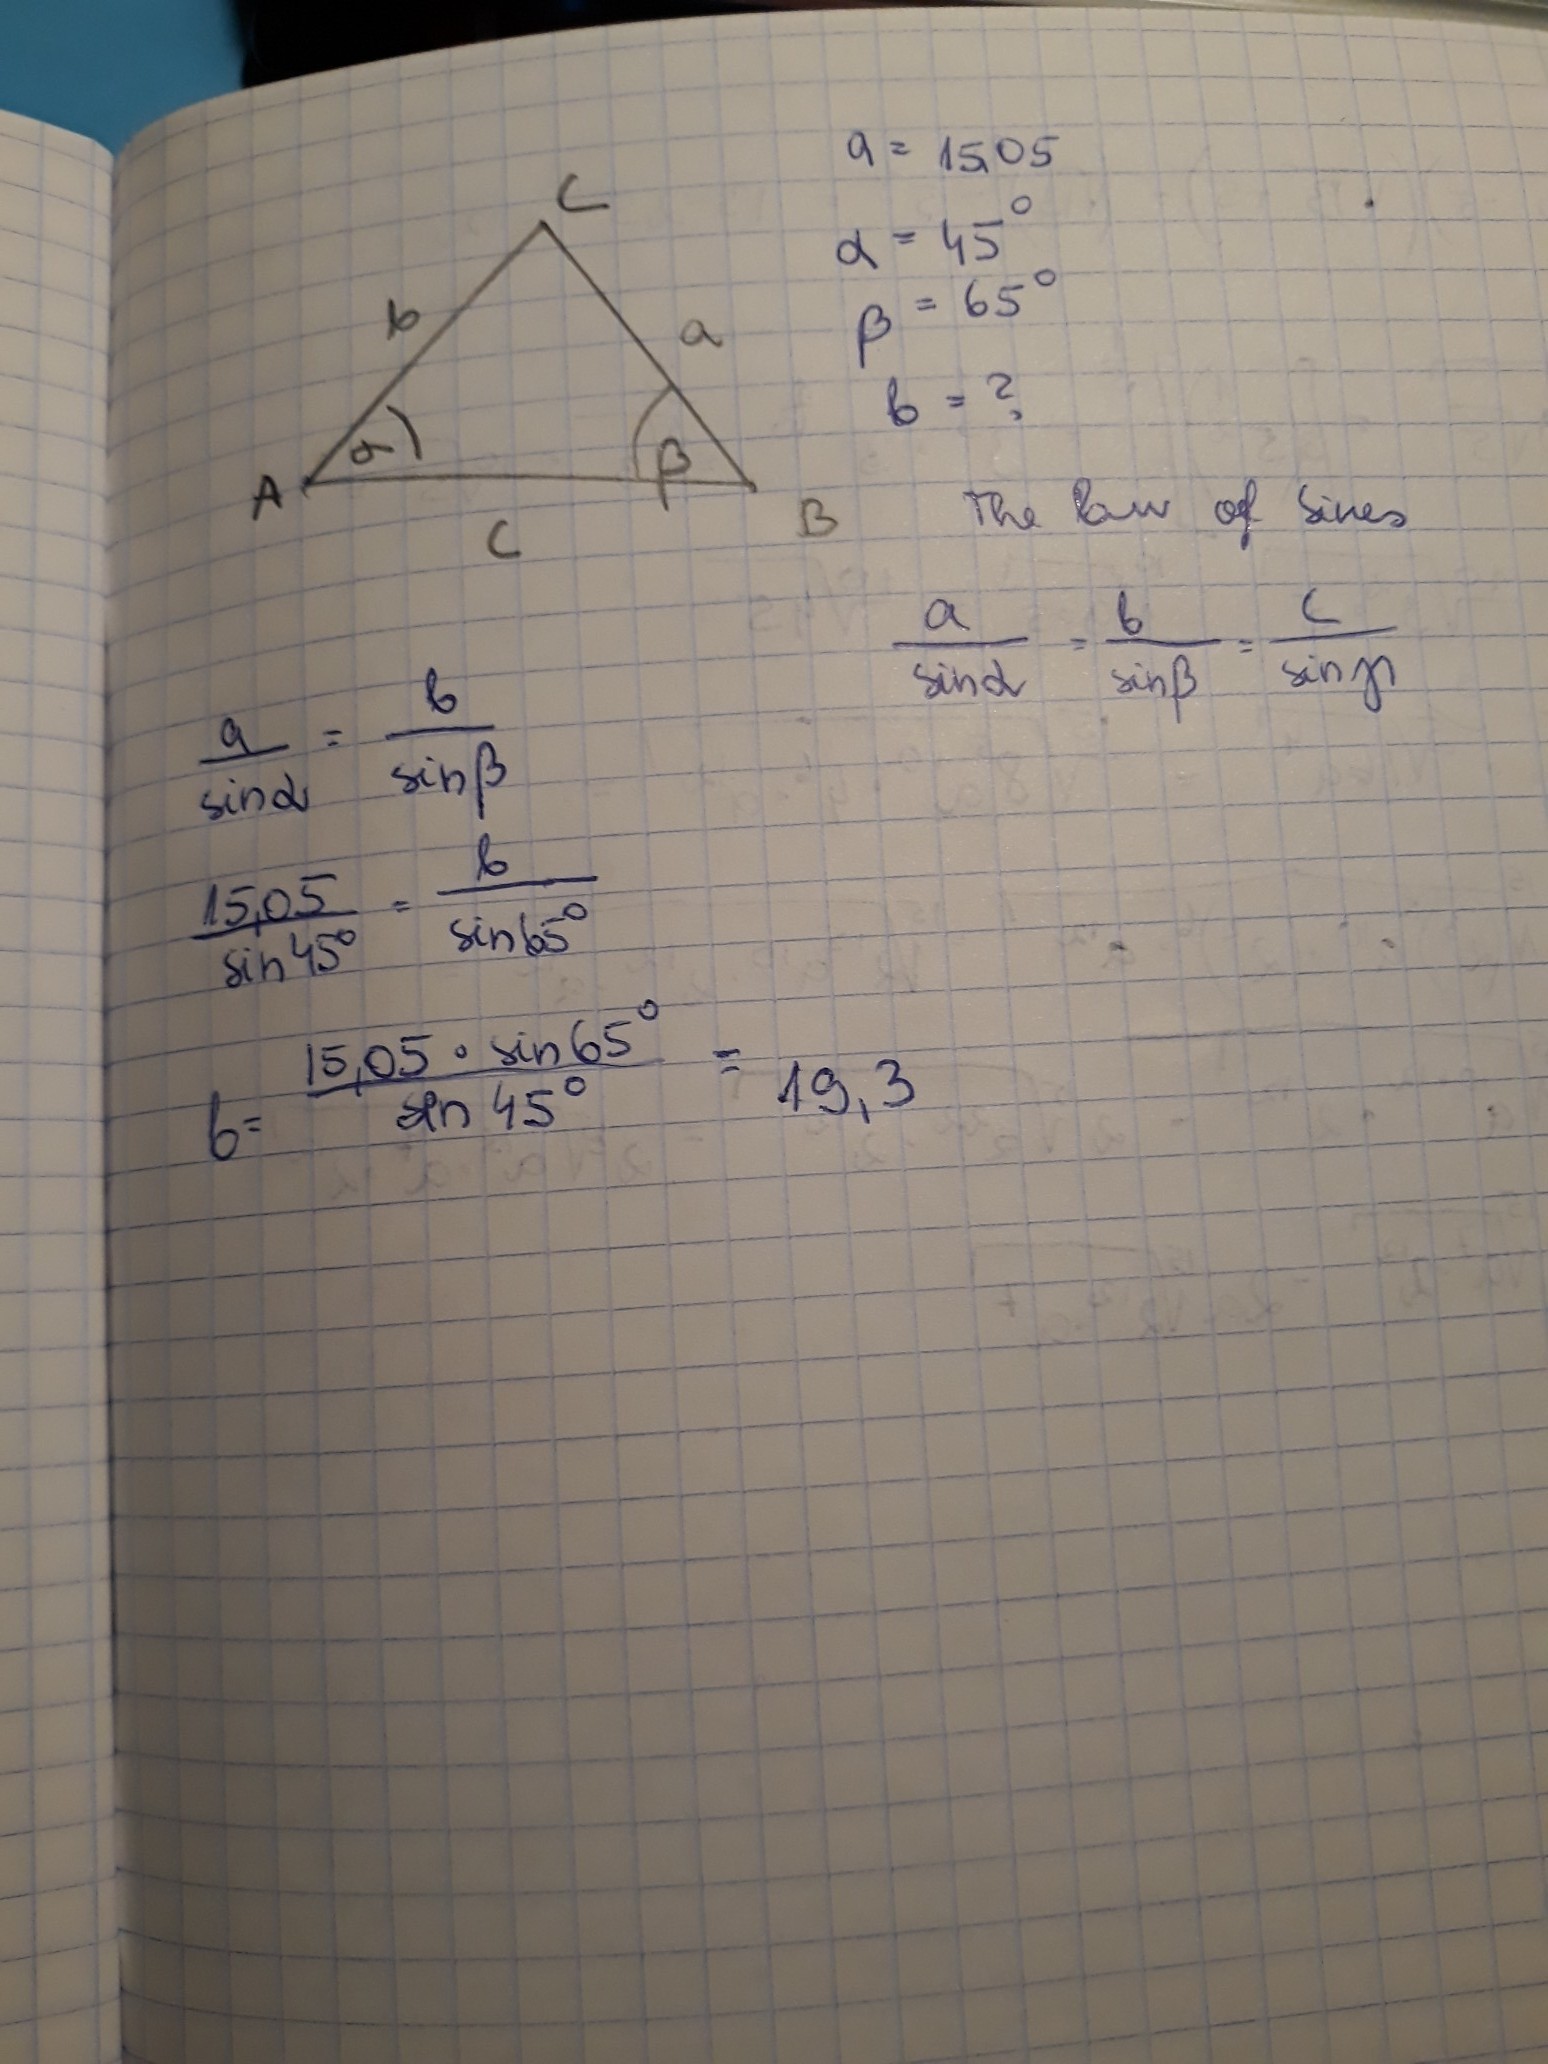 C
b
a
α
β
A
B
c
a = 15,05
α = 45°
β = 65°
b = ?
The law of sines
a/sinα = b/sinβ = c/sinγ
a/sinα = b/sinβ
15,05/sin45° = b/sin65°
b = 15,05 · sin65°/sin 45° = 19,3